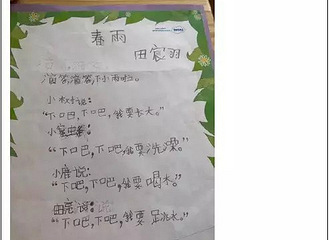 春雨
田宸羽
滴答滴答,下小雨啦。
小树说:
"下吧,下吧,我要长大。"
小
"下口巴,下口巴,我要洗澡。"
小鹿说:
"下吧,下吧,我要喝水。"
田宸说:
"下吧,下吧,我要足兆水。"